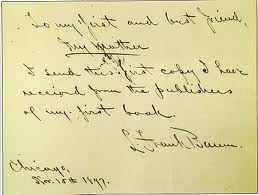 To my first and best friend,
My Mother
I send this first copy I have
received from the publishers
of my first book.
L. Frank Baum.
Chicago,
Nov. 15th 1897.